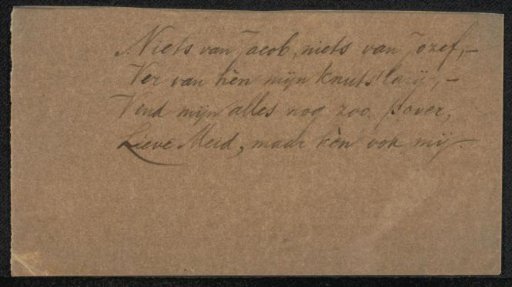 Niets van Jacob, niets van Jozef,—
Ver van hèn mijn
Vind mijn alles nog zoo pover,
Lieve Meid, maar hèn ook mij—